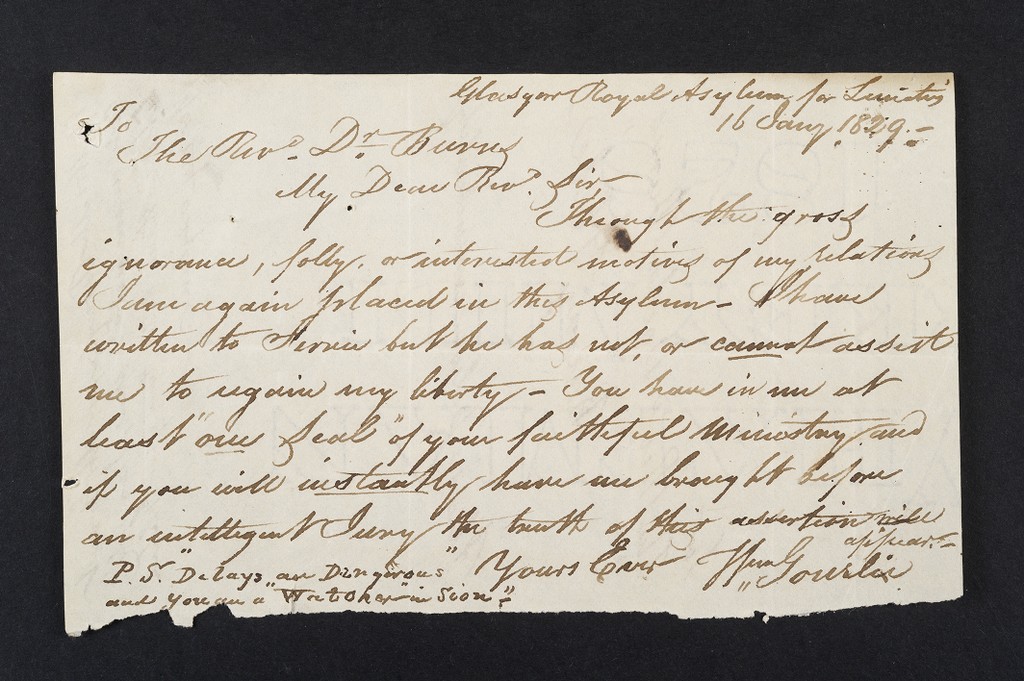 Glasgow Royal Asylum for Lunatics
16 Jany. 1829.-
To
The Revd. Dr. Burns
My Dear Revd. Sir
Through the gross
ignorance, folly, or interested motives of my relations
I am again placed in this Asylum - I have
written to but he has not, or cannot assist
me to regain my liberty - You have in me at
least "one Seal" of your faithful Ministry and
if you will instantly have me brought before
an intelligent Jury the truth of this assertion will
appear.-
Yours Ever Wm Gourlie
P.S. Delays "are Dangerous"
and you are a "Watcher in Sion"-